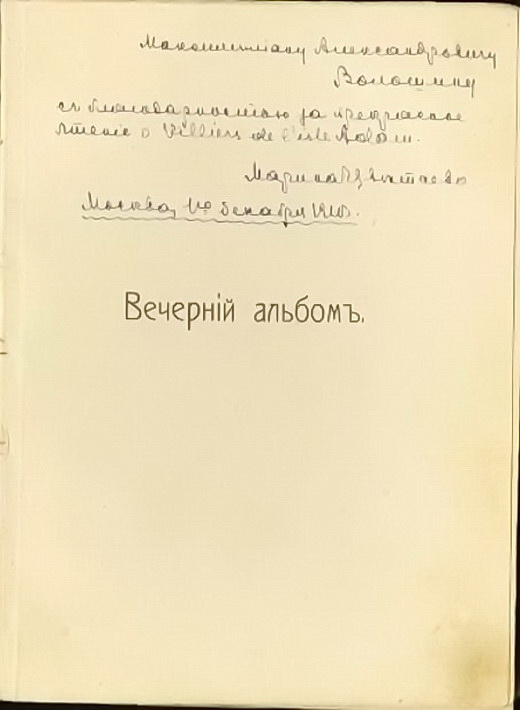 Максимиліану Александровичу
Волошину
съ благодарностью за прекрасное
чтеніе о Villiers de l'isle Adam.
Марина Цвѣтаева
Москва, 1го декабря 1910г.
Вечерній альбомъ.